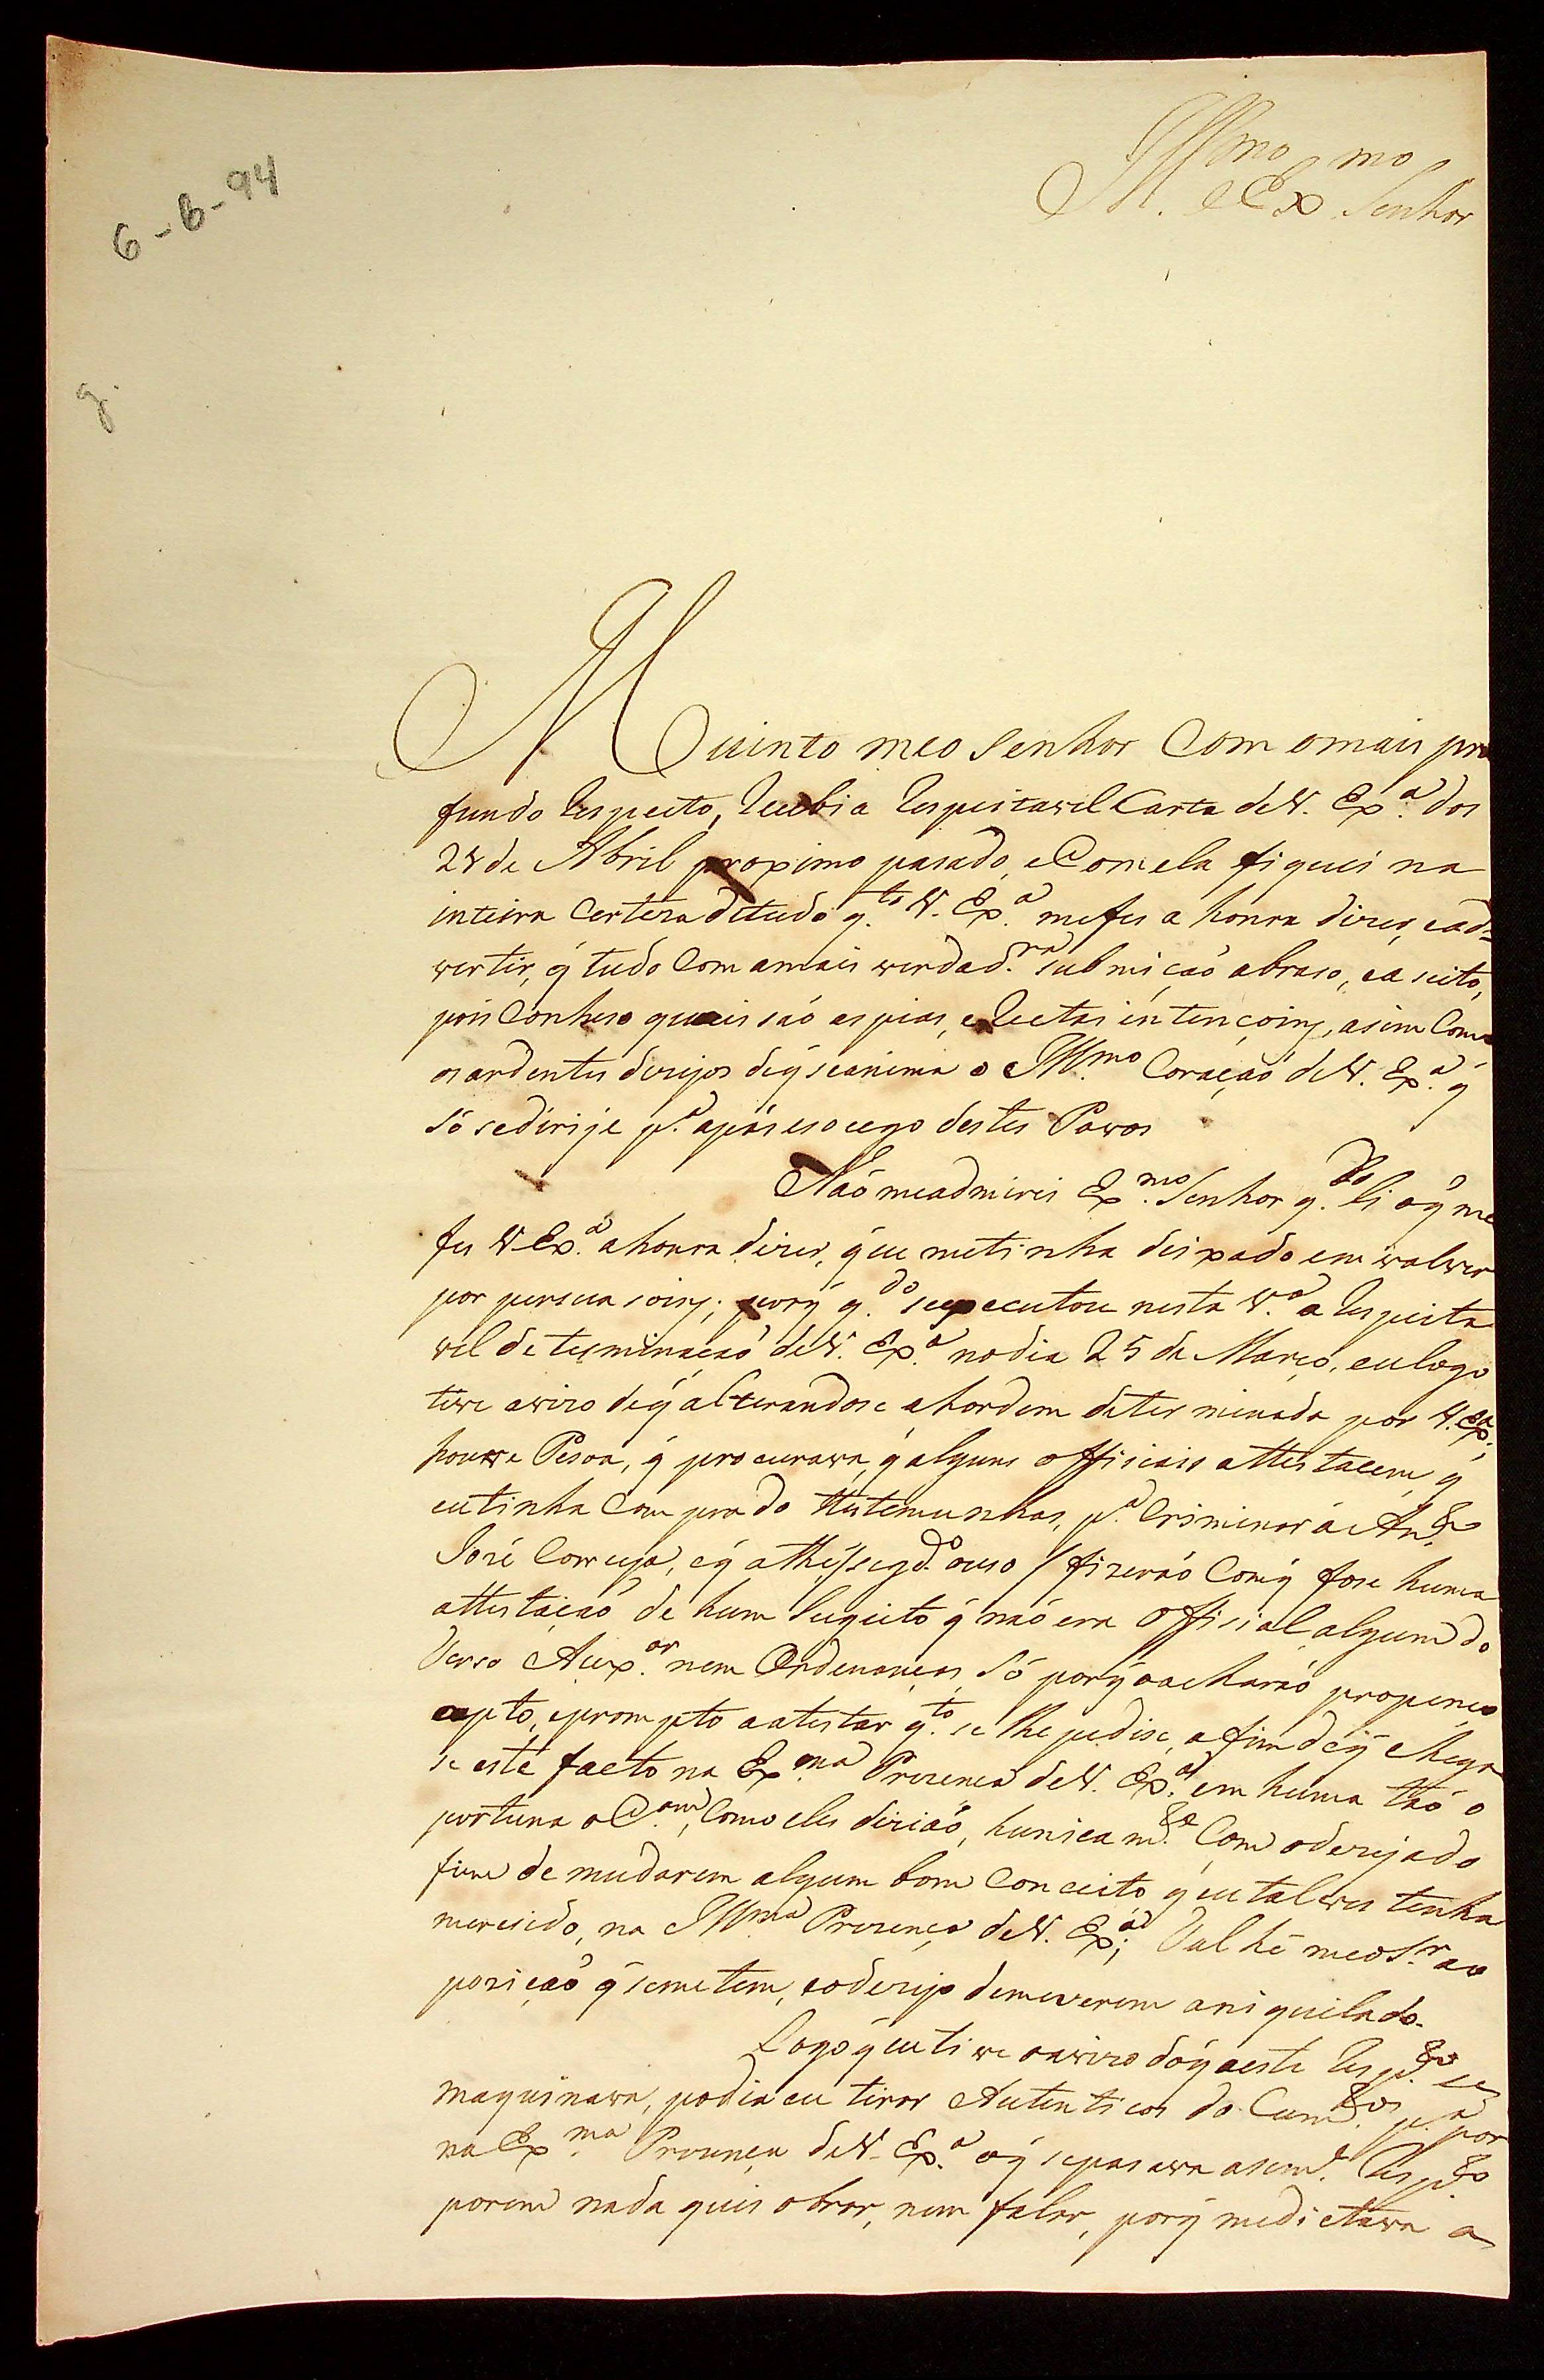 6-6-94
Ill.mo e Ex.mo Senhor
g.
Muinto meo Senhor Com omais pro
fundo Respeito, Recebi a Respeitavel Carta deV. Ex.a dos
28 de Abril proximo pasado, eComela fiquei na
inteira Certeza detudo q.to V. Ex.a mefes a honra dizer, ead=
vertir, q̃ tudo Com amais verdad.ra submição abraso, ea seito,
pois Conheso quais são as pias, e Rectas intençoins, asim Como
os ardentes dezejos deq̃ seanima o Ill.mo Coração deV. Ex.a q̃
Só sedirije p.a apás esocego destes Povos
Não meadmirei Ex.mo Senhor q.do li oq̃ me
fes V. Ex.a ahonra dizer, q̃eu metinha deixado em volver
por persuasoins; porq̃ q.do seexecutou nesta V.a a Respeita
vel determinação deV. Ex.a nodia 25 de Março, eulogo
tive avizo deq̃ alterandose ahordem determinada por V. Ex.a;
houve Pesoa, q̃ procurava, q̃ alguns officiais attestacem, q̃
eutinha Comprado testemunhas, p.a Criminar a An.to
José Correya, eq̃ athé /segd.o ouso/ fizerão Comq̃ fose huma
attestação de hum Sugeito q̃ não era Official algum do
Terso Aux.ar nem Ordenanças, Só porq̃ oacharão propenco
apto, epronpto aatestar q.to se lhe pedise, afim deq̃ chega
se este facto na Ex.ma Prezença deV. Ex.a em huma tão o
portuna oC.am, Como eles dirião, hunicam.te Com odezejado
fim de mudarem algum bom Conceito q̃ eu talves tenha
meresido, na Ill.ma Prezença deV. Ex.a; Tal hé meoS.r ao
pozição q̃ semetem, eodezejo demeverem aniquilado.
Logo q̃ eutive oavizo doq̃ aeste Resp.to se
maquinava, podia eu tirar Autenticos do Cum.tos p.a por
na Ex.ma Prezença deV. Ex.a oq̃ sepasava asem.e Resp.to
porem nada quis obrar, nem falar, porq̃ medictava a